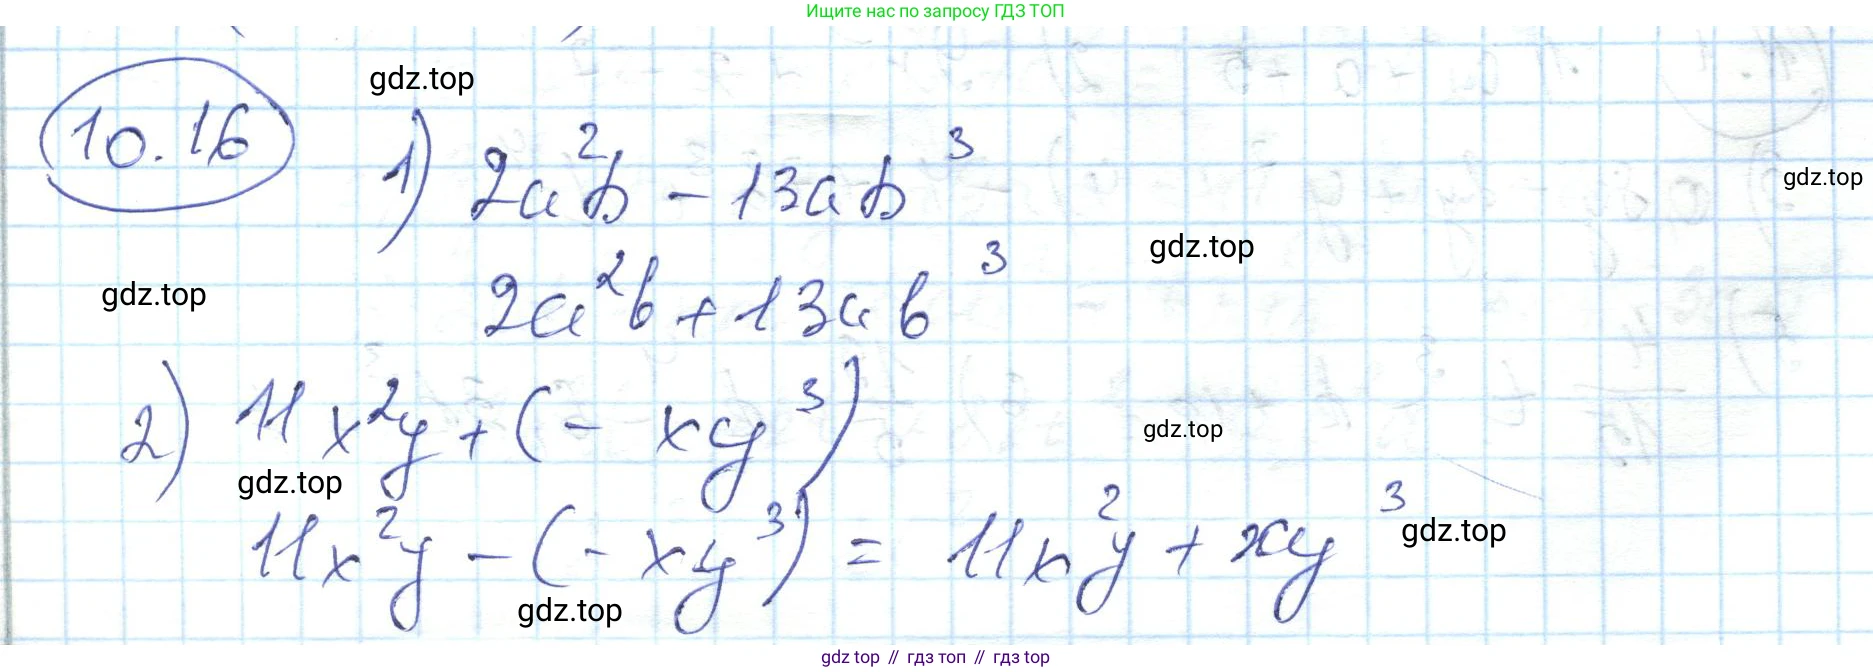 Ищите нас по запросу ГДЗ ТОП
gdz.top
10.16
1) 2a²b - 13ab³
gdz.top
gdz.top
2a²b + 13ab³
gdz.top
2) 11x²y + (- xy³)
gdz.top
gdz.top
11x²y - (- xy³) = 11x²y + xy³
gdz.top
gdz.top
gdz top // гдз топ // гдз.top